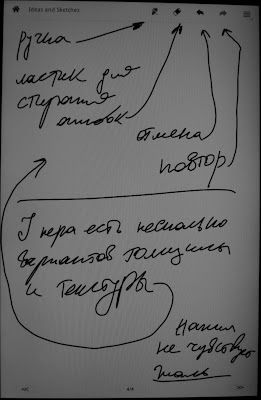 Ideas and Sketches
ручка
ластик для
стирания
ошибок
отмена
повтор
есть несколько
вариантов толщины
и текстуры
Нажим
не чувствует
жаль
4/4